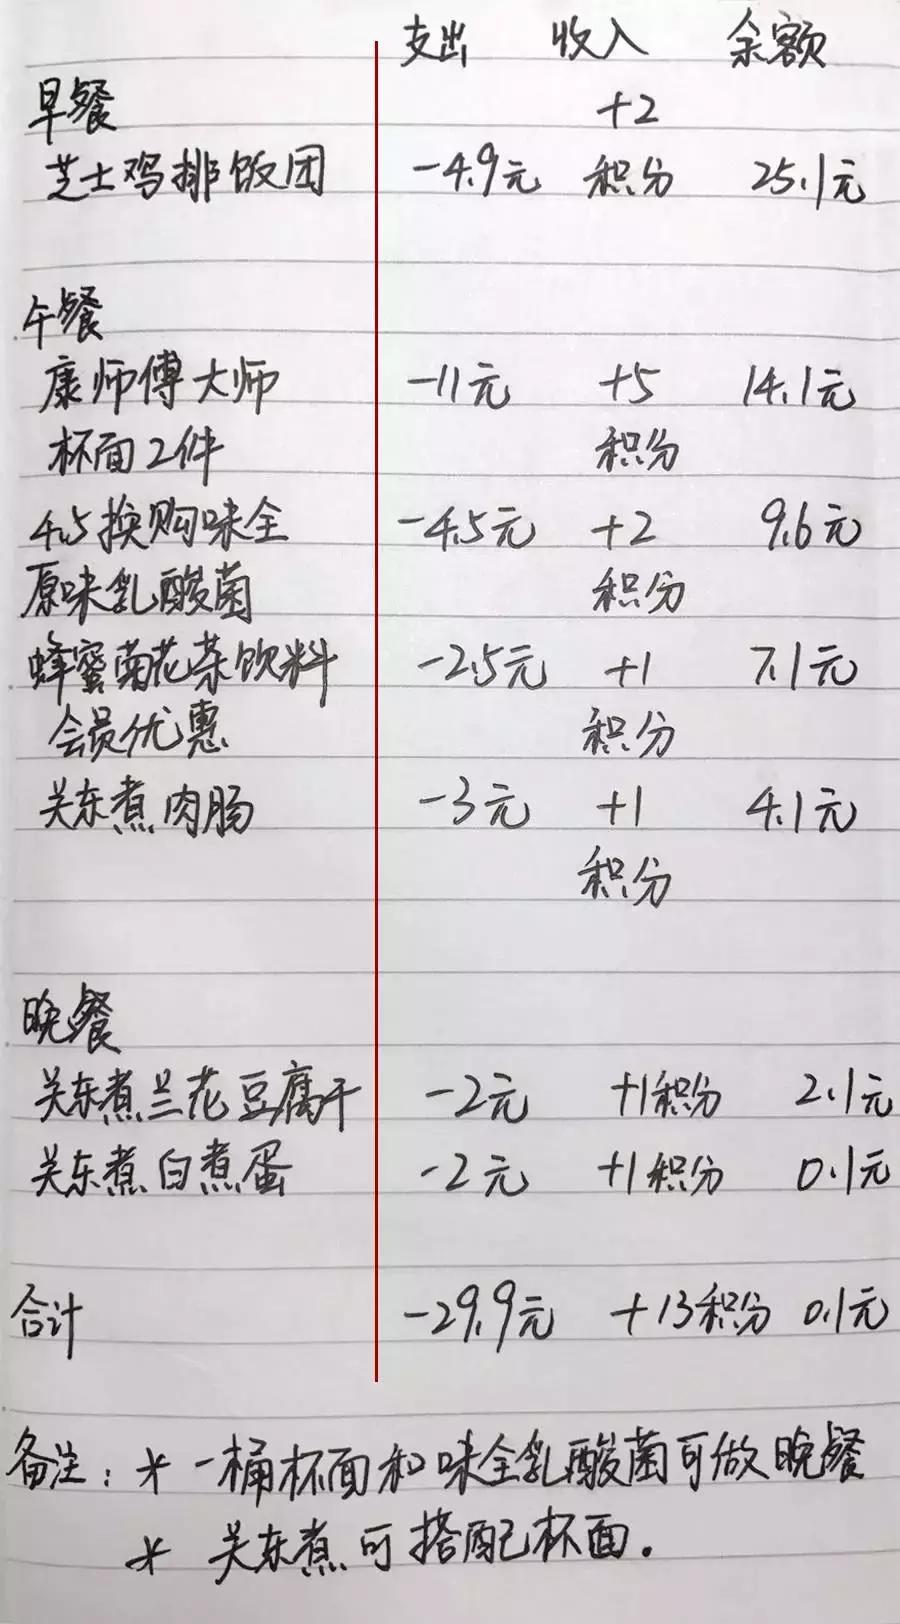 支出 收入 余额
早餐 +2
芝士鸡排饭团 -4.9元 积分 25.1元
午餐
康师傅大师 -11元 +5 14.1元
杯面2件 积分
4.5换购味全 -4.5元 +2 9.6元
原味乳酸菌 积分
蜂蜜菊花茶饮料 -2.5元 +1 7.1元
会员优惠 积分
关东煮肉肠 -3元 +1 4.1元
积分
晚餐
关东煮兰花豆腐干 -2元 +1积分 2.1元
关东煮白煮蛋 -2元 +1积分 0.1元
合计 -29.9元 +13积分 0.1元
备注：* 一桶杯面和味全乳酸菌可做晚餐
* 关东煮可搭配杯面。